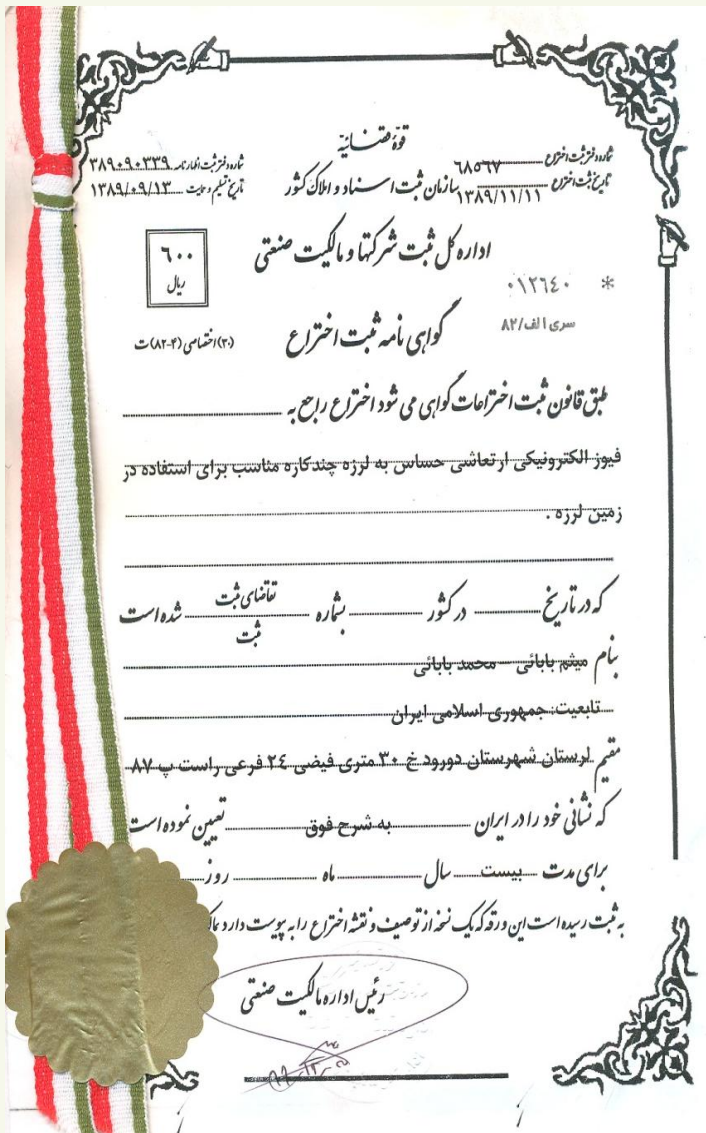 قوّهٔ قضائیّه
شماره دفتر ثبت اختراع ۶۸۵۶۷
تاریخ ثبت اختراع ۱۳۸۹/۱۱/۱۱
سازمان ثبت اسناد و املاک کشور
شماره دفتر ثبت اظهارنامه ۳۸۹۰۹۰۳۳۹
تاریخ تسلیم و حمایت ۱۳۸۹/۰۹/۱۳
اداره کل ثبت شرکتها و مالکیت صنعتی
۶۰۰
ریال
* ۰۱۲٦٤۰
سری الف/۸۲
گواهی نامه ثبت اختراع
(۳۰) اختصاصی (۴-۸۲) ت
طبق قانون ثبت اختراعات گواهی می شود اختراع راجع به
فیوز الکترونیکی ارتعاشی حساس به لرزه چندکاره مناسب برای استفاده در
زمین لرزه .
که در تاریخ در کشور بشماره تقاضای ثبت شده است
ثبت
بنام میثم بابائی - محمد بابائی
تابعیت: جمهوری اسلامی ایران
مقیم لرستان شهرستان دورود خ ۳۰ متری فیضی ۲٤ فرعی راست پ ۸۷
که نشانی خود را در ایران به شرح فوق تعیین نموده است
برای مدت بیست سال ماه روز
به ثبت رسیده است این ورقه که یک نسخه از توصیف و نقشه اختراع را به پیوست دارد
رئیس اداره مالکیت صنعتی